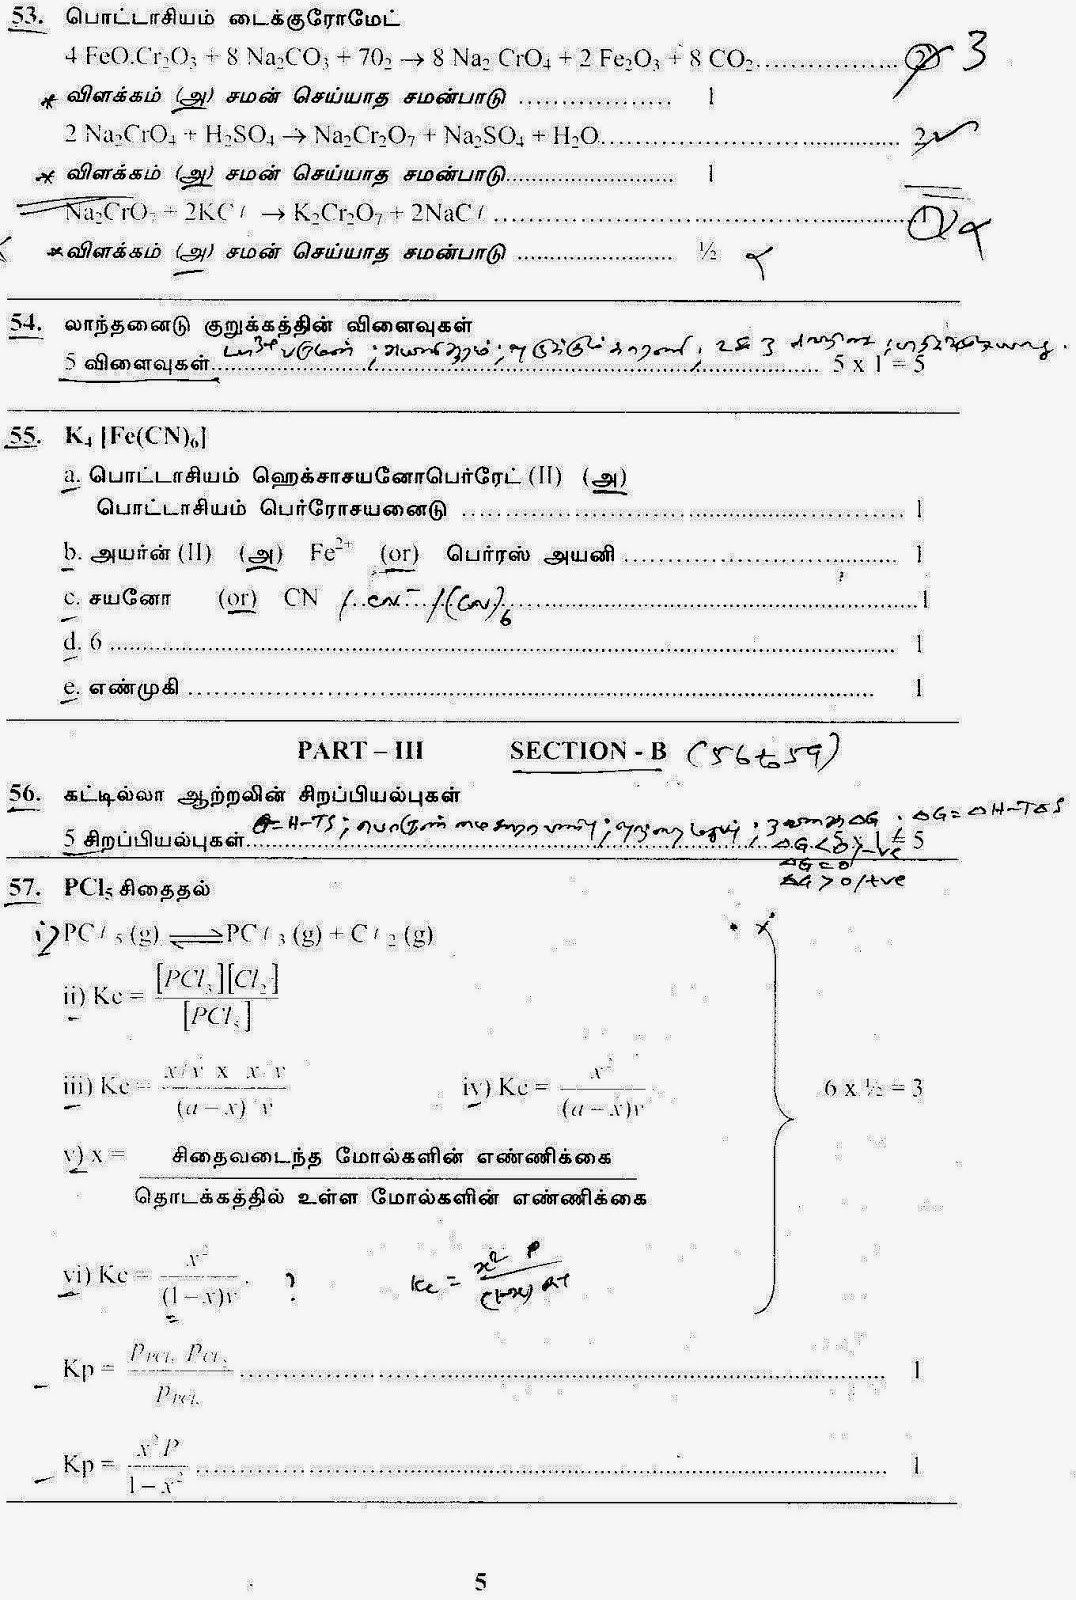 53. பொட்டாசியம் டைக்குரோமேட்
4 FeO.Cr₂O₃ + 8 Na₂CO₃ + 7O₂ → 8 Na₂ CrO₄ + 2 Fe₂O₃ + 8 CO₂.................. 2 3
* விளக்கம் (அ) சமன் செய்யாத சமன்பாடு ................... 1
2 Na₂CrO₄ + H₂SO₄ → Na₂Cr₂O₇ + Na₂SO₄ + H₂O...................................... 2
* விளக்கம் (அ) சமன் செய்யாத சமன்பாடு......................... 1
Na₂CrO₇ + 2KCl → K₂Cr₂O₇ + 2NaCl ...................................................... 1
* விளக்கம் (அ) சமன் செய்யாத சமன்பாடு ....................... ½
54. லாந்தனைடு குறுக்கத்தின் விளைவுகள்
5 விளைவுகள்.................................................................................... 5 x 1 = 5
55. K₄ [Fe(CN)₆]
a. பொட்டாசியம் ஹெக்சாசயனோபெர்ரேட் (II) (அ)
பொட்டாசியம் பெர்ரோசயனைடு ............................................................ 1
b. அயர்ன் (II) (அ) Fe²⁺ (or) பெர்ரஸ் அயனி ..................................... 1
c. சயனோ (or) CN / CN⁻ / (CN)₆ .......................................................1
d. 6 ................................................................................................................ 1
e. எண்முகி ................................................................................................... 1
PART – III SECTION - B (56 to 59)
56. கட்டில்லா ஆற்றலின் சிறப்பியல்புகள்
G = H-TS ; ΔG = ΔH-TΔS
5 சிறப்பியல்புகள்.................................................................. 5 x 1 = 5
ΔG < 0 / -ve
ΔG = 0
ΔG > 0 / +ve
57. PCl₅ சிதைதல்
i) PCl₅ (g) ⇌ PCl₃ (g) + Cl₂ (g)
ii) Kc = [PCl₃][Cl₂] / [PCl₅]
iii) Kc = x/v x x/v / (a – x) / v iv) Kc = x² / (a – x)v 6 x ½ = 3
v) x = சிதைவடைந்த மோல்களின் எண்ணிக்கை
தொடக்கத்தில் உள்ள மோல்களின் எண்ணிக்கை
vi) Kc = x² / (1 – x)v . ? Kc = x² P / (1-x) RT
Kp = pPCl₃ pCl₂ / pPCl₅ .................................................................................. 1
Kp = x² P / 1 – x² ........................................................................................ 1
5